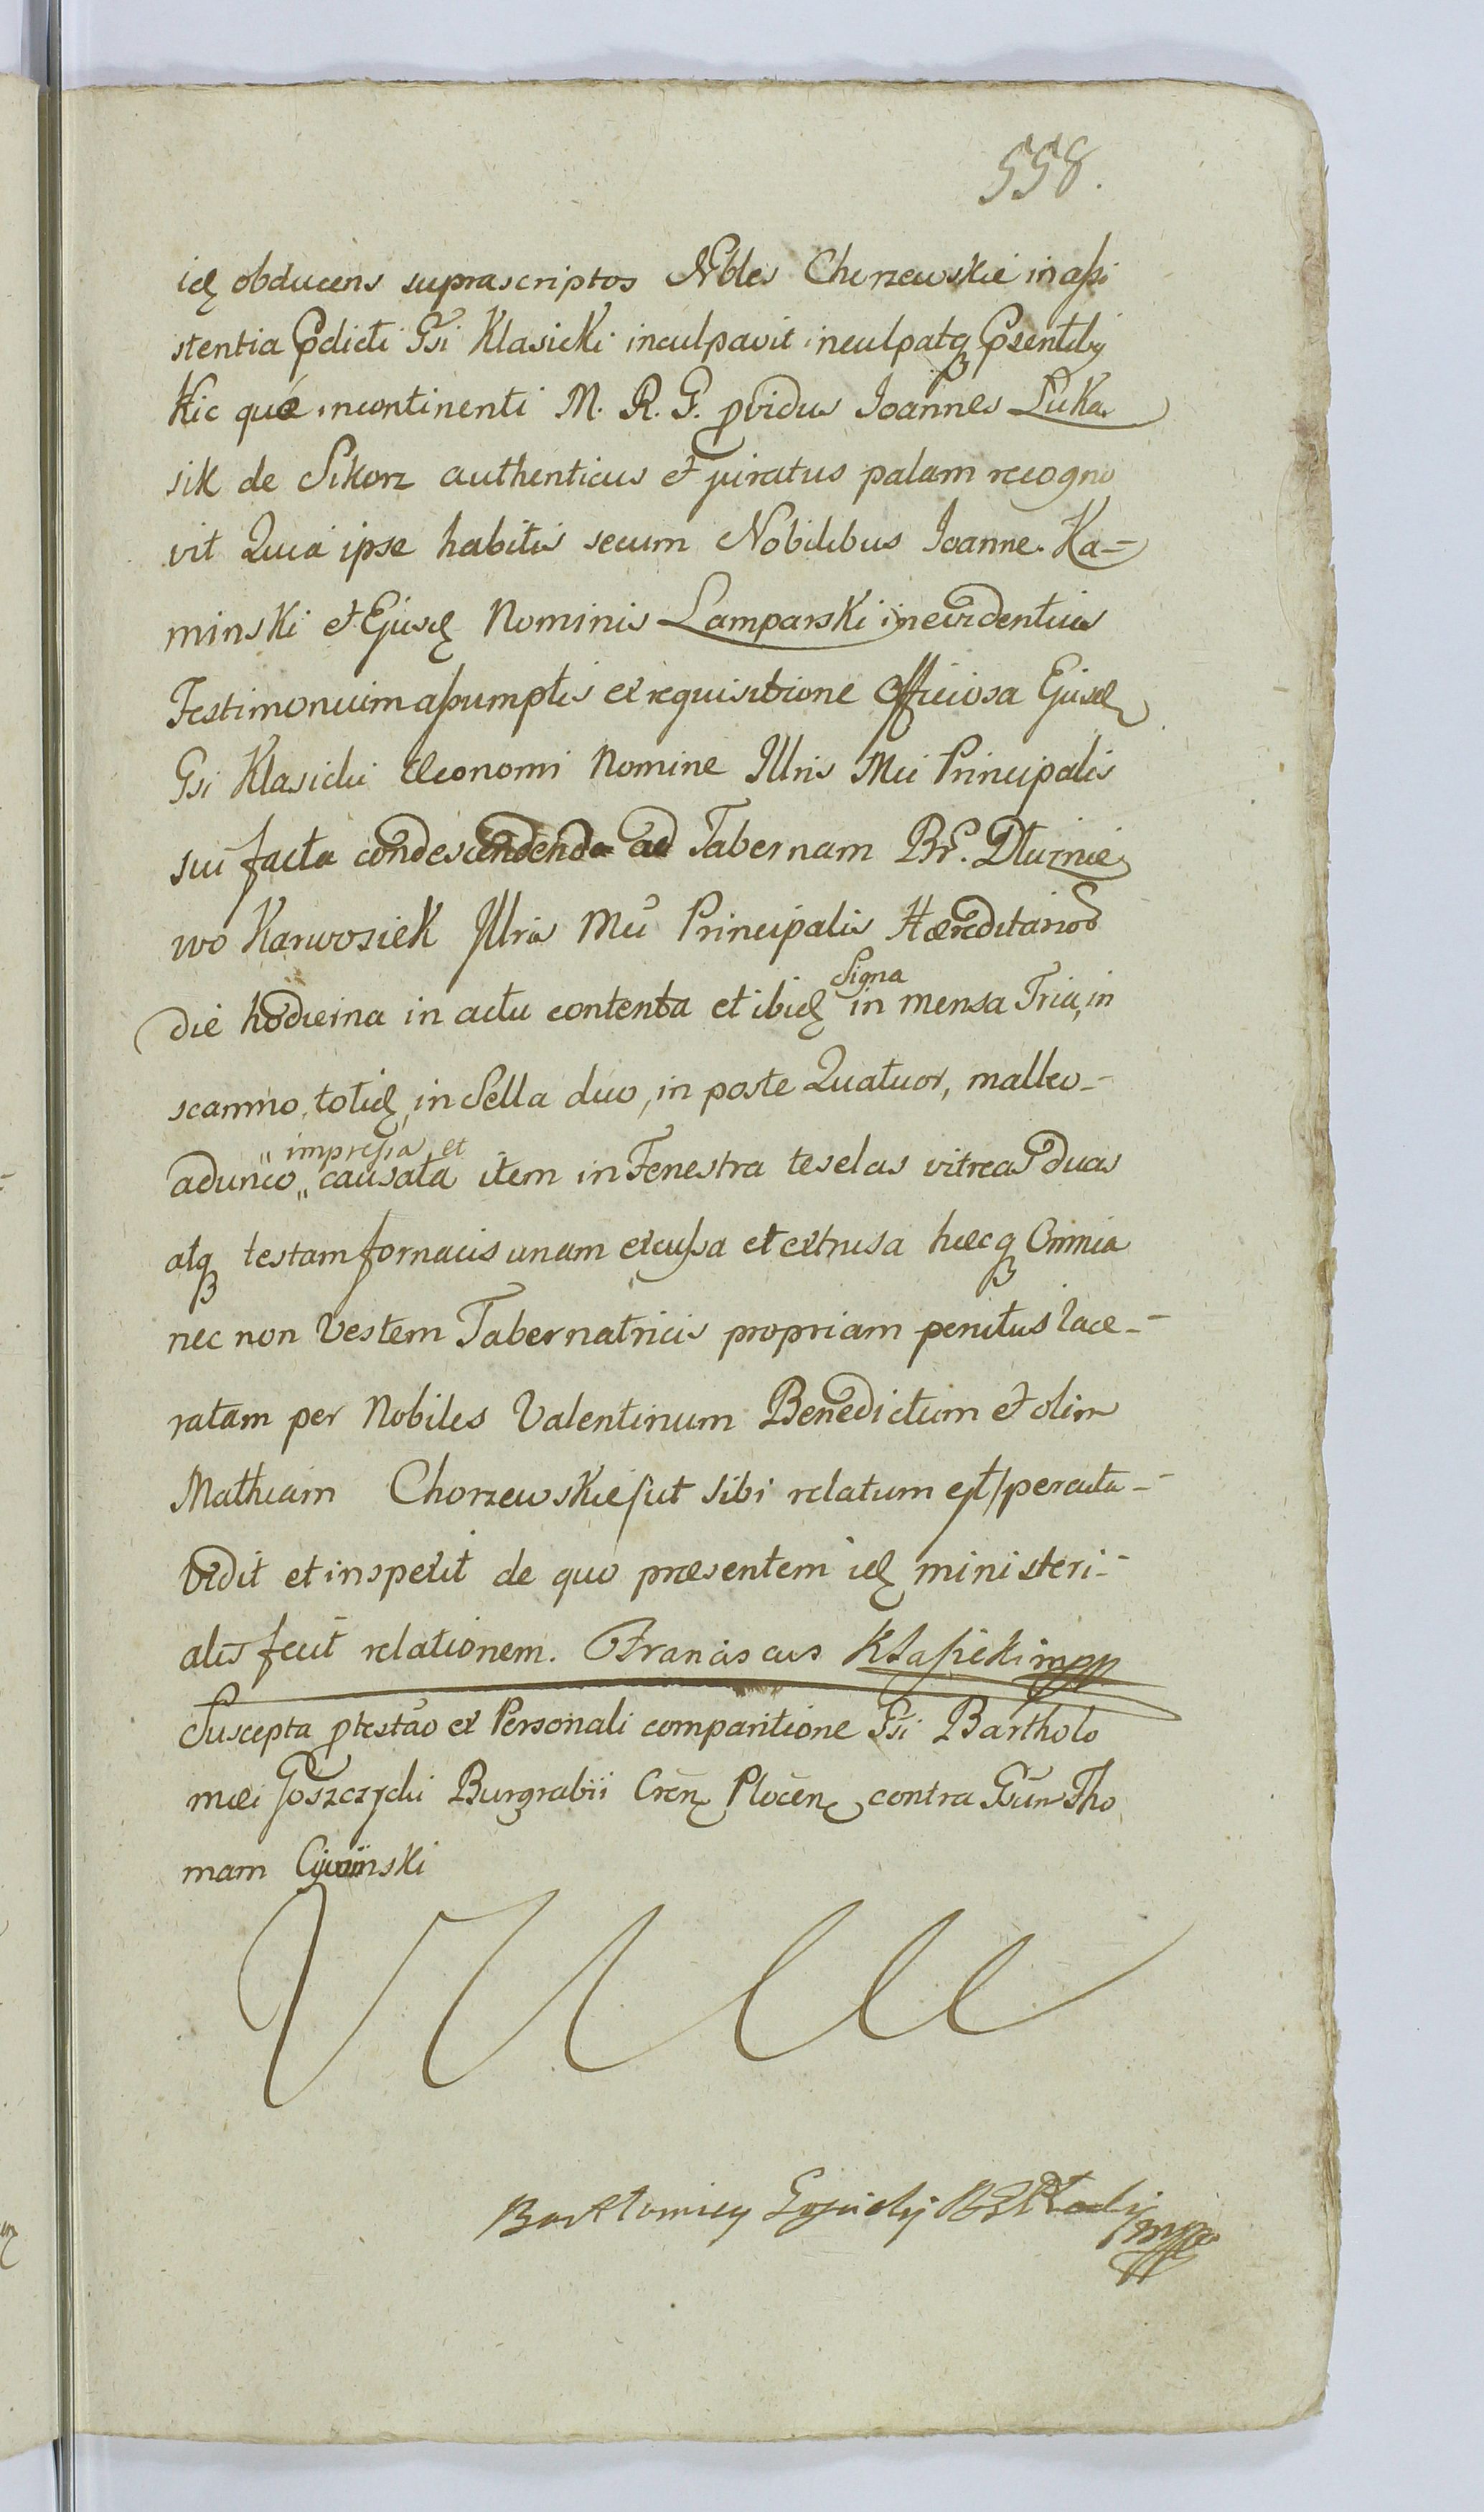 558.
idq obducens suprascriptos Nbles Chorzewskie in assi
stentia Pdicti Gsi Klasicki inculpavit inculpatq Psentibq
Hic que incontinenti M. R. G. pvidus Joannes Luka
sik de Sikorz authenticus et juratus palam recogno
vit Quia ipse habitis secum Nobilibus Joanne Ka-
minski et Ejusdq Nominis Lamparski in evidentius
Testimonium assumptis ex requisitione Officiosa Ejusd
Gsi Klasicki Œconomi Nomine Illris Mci Principalis
sui facta condescendenda ad Tabernam Br. Dłuznie
wo Karwosiek Illris Mci Principalis Hæreditario
die hodierna in actu contenta et ibidq Signa in mensa Tria, in
scamno, totidq, in Sella duo, in poste Quatuor, malleo-
adunco „ impressa et „ causata item in Fenestra teselas vitreas duas
atq testam fornacis unam excussa et extrusa hæcq Omnia
nec non Vestem Tabernatricis propriam penitus lace-
ratam per Nobiles Valentinum Benedictum et olim
Mathiam Chorzewskie sut sibi relatum est / percuta-
vidit et inspexit de quo præsentem idq ministeri-
alis fecit relationem. Franciscus Klasicki mpp
Suscepta ptestao ex Personali comparitione Gsi Bartholo
mæi Goszczycki Burgrabii Cren Plocen contra Gsum Tho
mam
Bartłomiey mpp